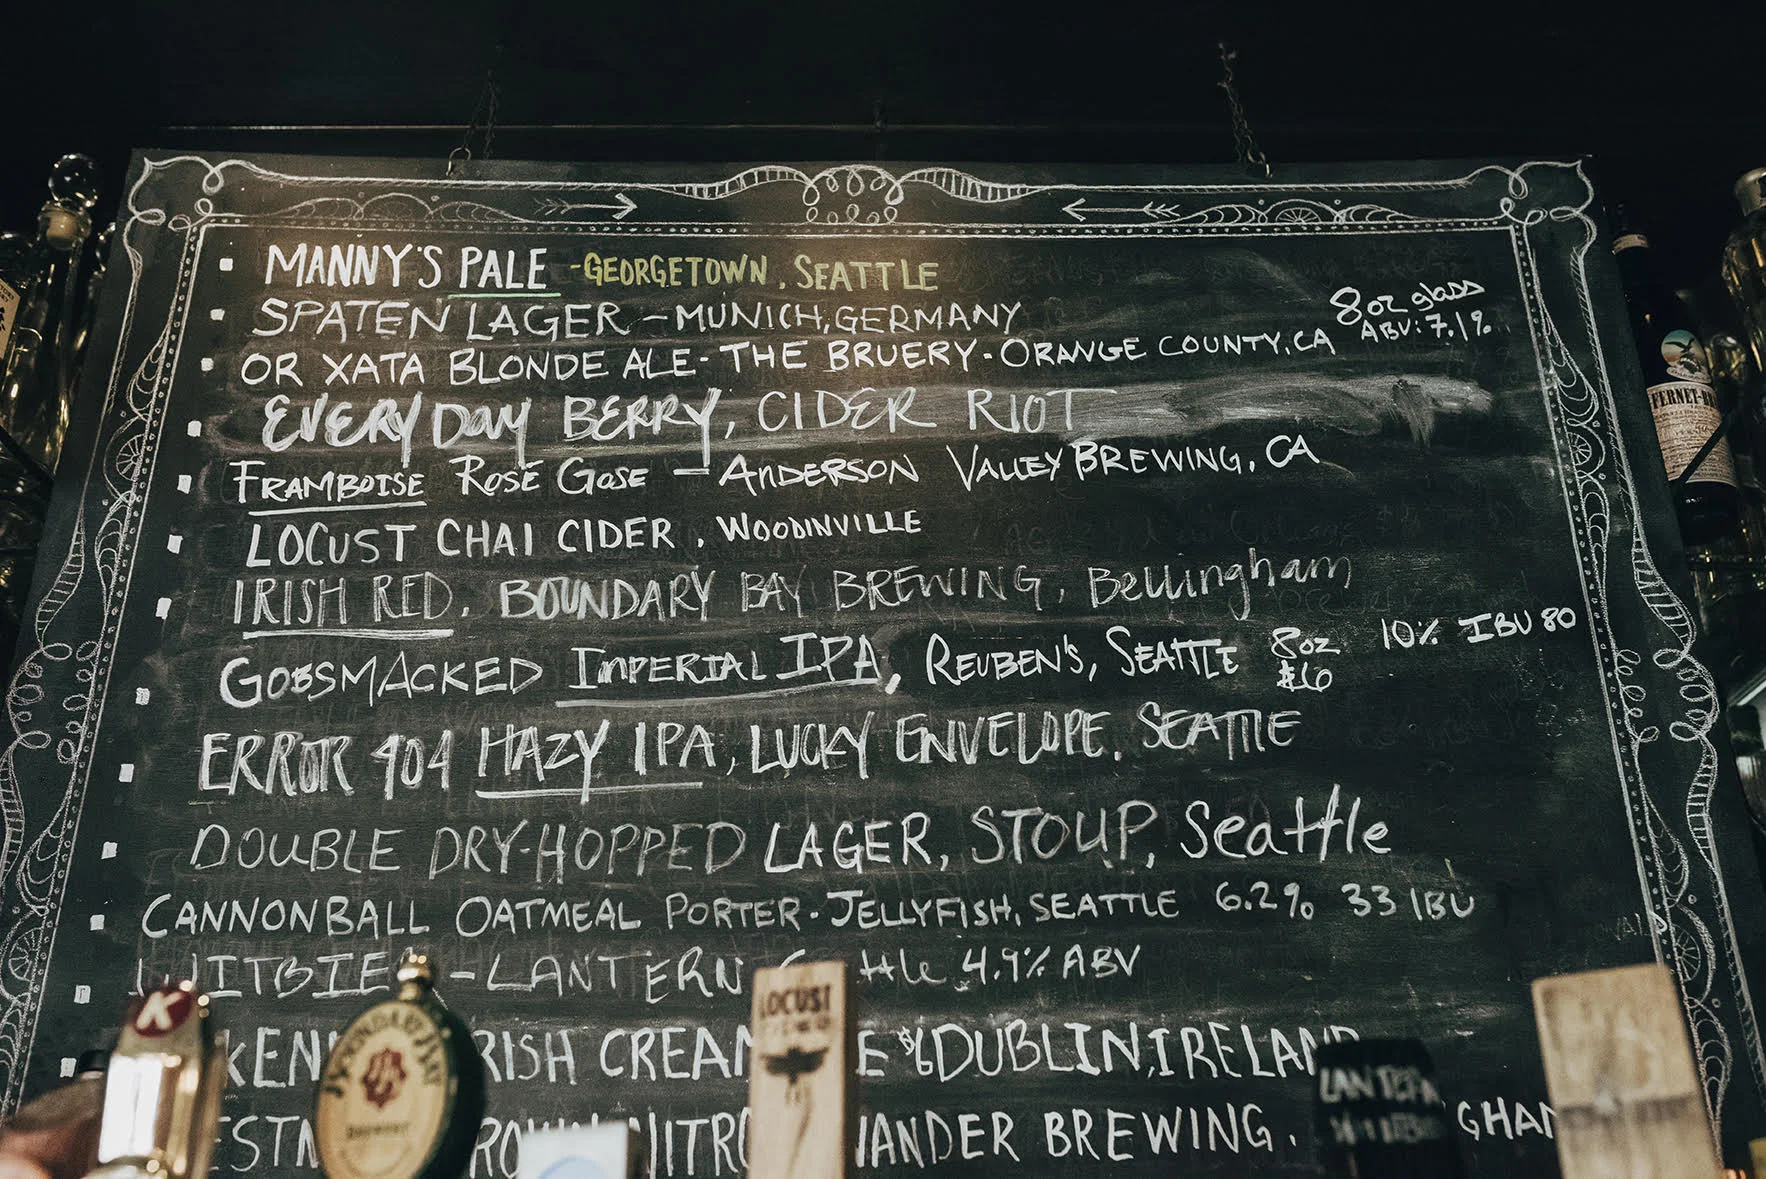 MANNY'S PALE - GEORGETOWN, SEATTLE
SPATEN LAGER - MUNICH, GERMANY
8oz glass
ABV: 7.1%
OR XATA BLONDE ALE - THE BRUERY - ORANGE COUNTY, CA
EVERYDAY BERRY, CIDER RIOT
FRAMBOISE ROSÉ GOSE - ANDERSON VALLEY BREWING, CA
LOCUST CHAI CIDER, WOODINVILLE
IRISH RED, BOUNDARY BAY BREWING, Bellingham
GOBSMACKED IMPERIAL IPA, REUBEN'S, SEATTLE 8oz $6 10% IBU 80
ERROR 404 HAZY IPA, LUCKY ENVELOPE, SEATTLE
DOUBLE DRY-HOPPED LAGER, STOUP, Seattle
CANNONBALL OATMEAL PORTER - JELLYFISH, SEATTLE 6.2% 33 IBU
WITBIE - LANTERN 4.9% ABV
CREAM $6 DUBLIN, IRELAND
BREWING.
FERNET-BR
LOCUST
LANTERN